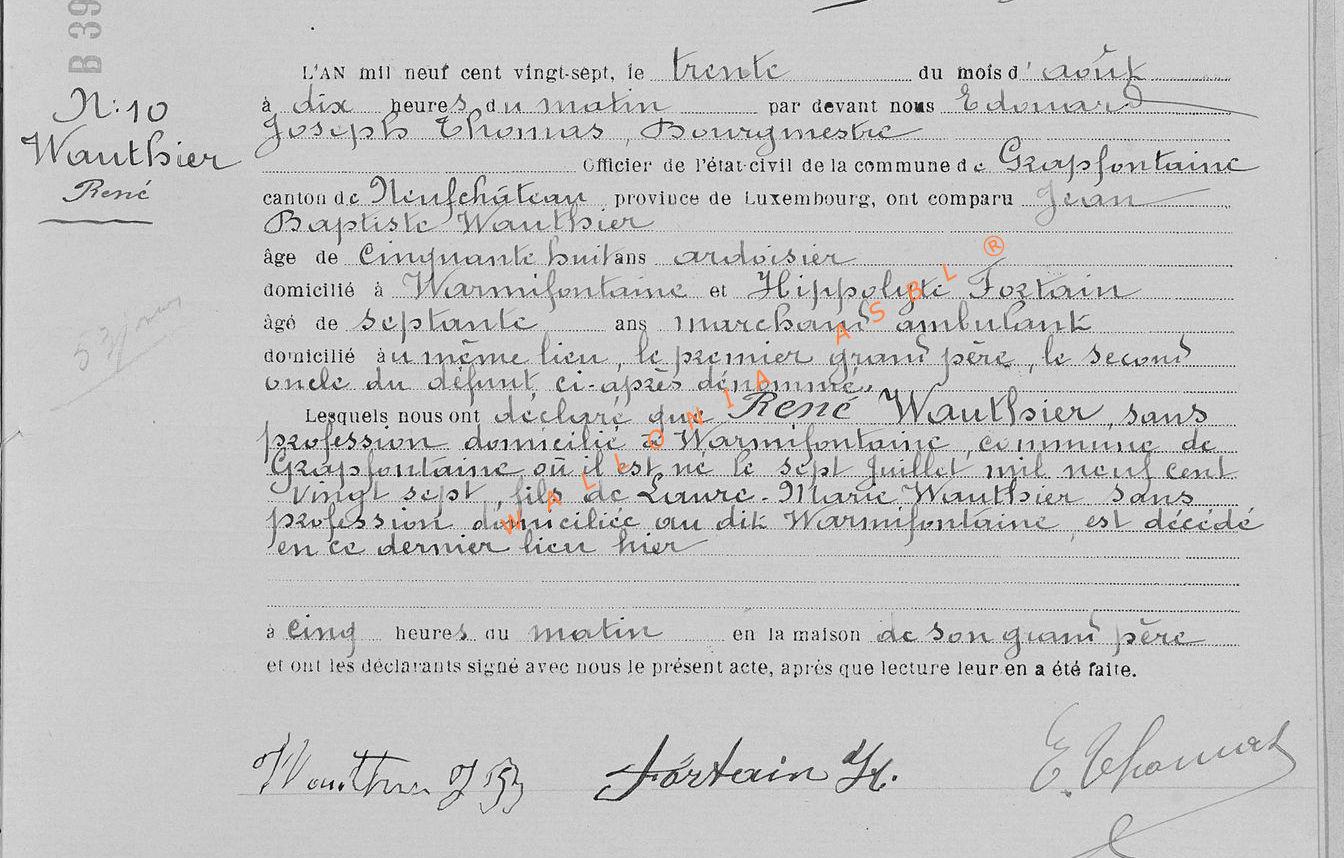 B 39
N: 10
Wauthier
René
L'AN mil neuf cent vingt-sept, le trente du mois d' août
à dix heures du matin par devant nous Edouard
Joseph Thomas, Bourgmestre
Officier de l'état-civil de la commune de Grapfontaine
canton de Neufchâteau province de Luxembourg, ont comparu Jean
Baptiste Wauthier
âge de cinquante huit ans ardoisier
domicilié à Warmifontaine et Hippolyte Fortain
âgé de septante ans marchand ambulant
domicilié au même lieu, le premier grand père, le second
oncle du défunt ci-après dénommé.
Lesquels nous ont déclaré que René Wauthier, sans
profession domicilié à Warmifontaine, commune de
Grapfontaine où il est né le sept juillet mil neuf cent
vingt sept, fils de Laure-Marie Wauthier sans
profession domiciliée au dit Warmifontaine, est décédé
en ce dernier lieu hier
à cinq heures du matin en la maison de son grand père
et ont les déclarants signé avec nous le présent acte, après que lecture leur en a été faite.
WALLONIA ASBL ®
53 jours
Wauthier J B
Fortain H.
E. Thomas